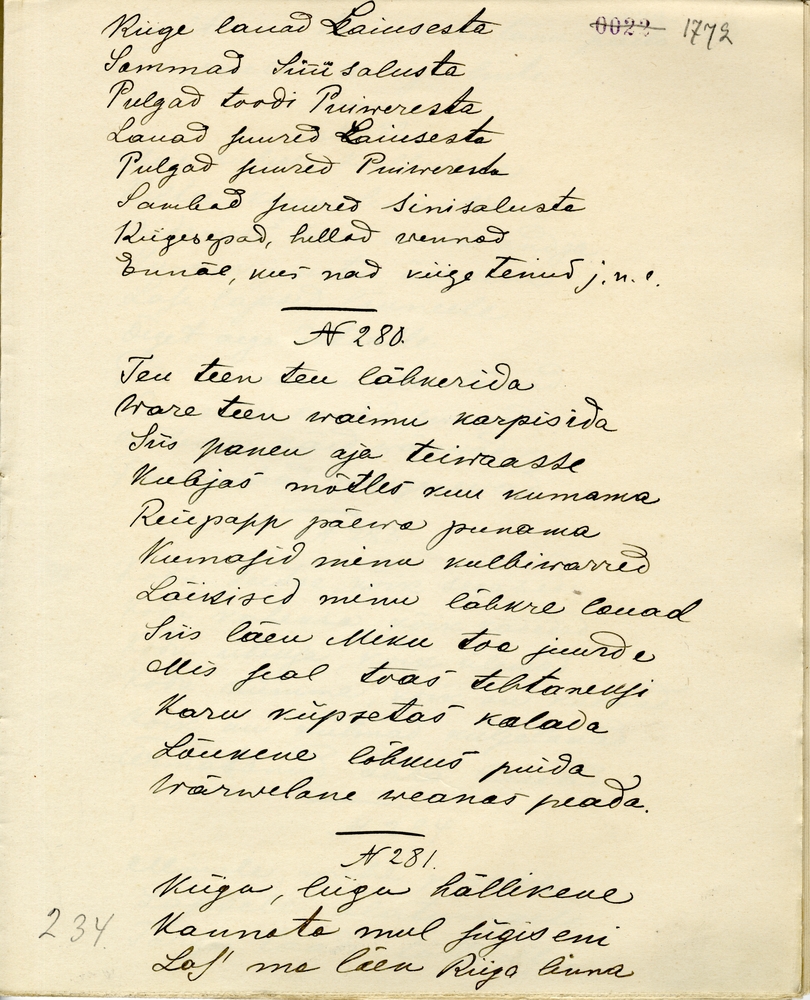 0022 1772
Kiige lauad Laiusesta
Sammad Siiisalusta
Pulgad toodi Puiweresta
Lauad suured Laiusesta
Pulgad suured Puiweresta
Sambad suured sinisalusta
Kiigesepad, hellad vennad
Ennäe, kus nad kiige teinud j. n. e.
№ 280.
Teu teen teu lähkerida
Ware teen waimu karpisida
Siis panen aja teiwaasse
Kubjas mõtles kuu kumama
Reiipapp päewa punama
Kumasid minu kulbiwarred
Läikisid minu lähkre lauad
Siis läen Miku toa juurde
Mis seal toas tehtaneksi
Karu küpsetas kalada
Lõukene lõhkus puida
Wärwelane weanas peada.
№ 281.
Kiigu, liigu hällikene
Kannata mul sügiseni
Las' ma läen Riiga linna
234.